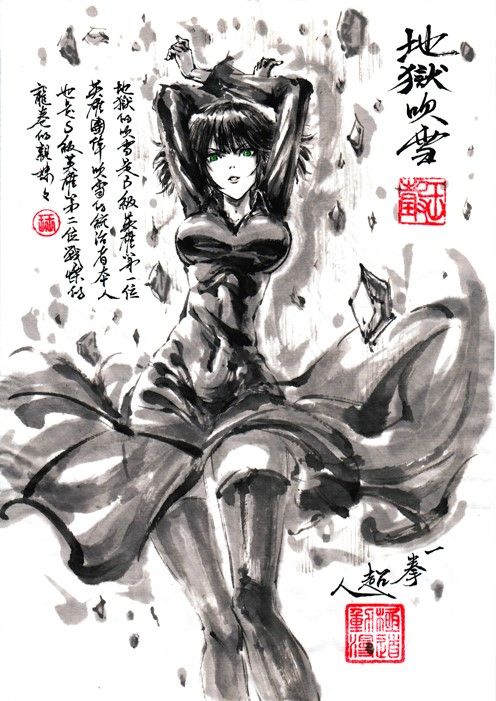 地獄吹雪
地獄的吹雪是B級英雄第一位
英雄團隊吹雪的統治者本人
也是S級英雄第二位戰慄的
龍卷的親妹々
一拳超人
極道
動漫